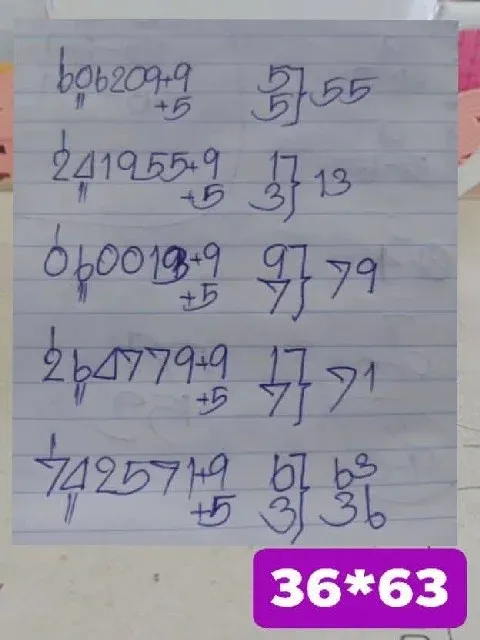 606209+9 5} 55
+5 5}
241955+9 1} 13
+5 3}
060019+9 9} 79
+5 7}
264779+9 1} 71
+5 7}
742571+9 6} 63
+5 3} 36
36*63